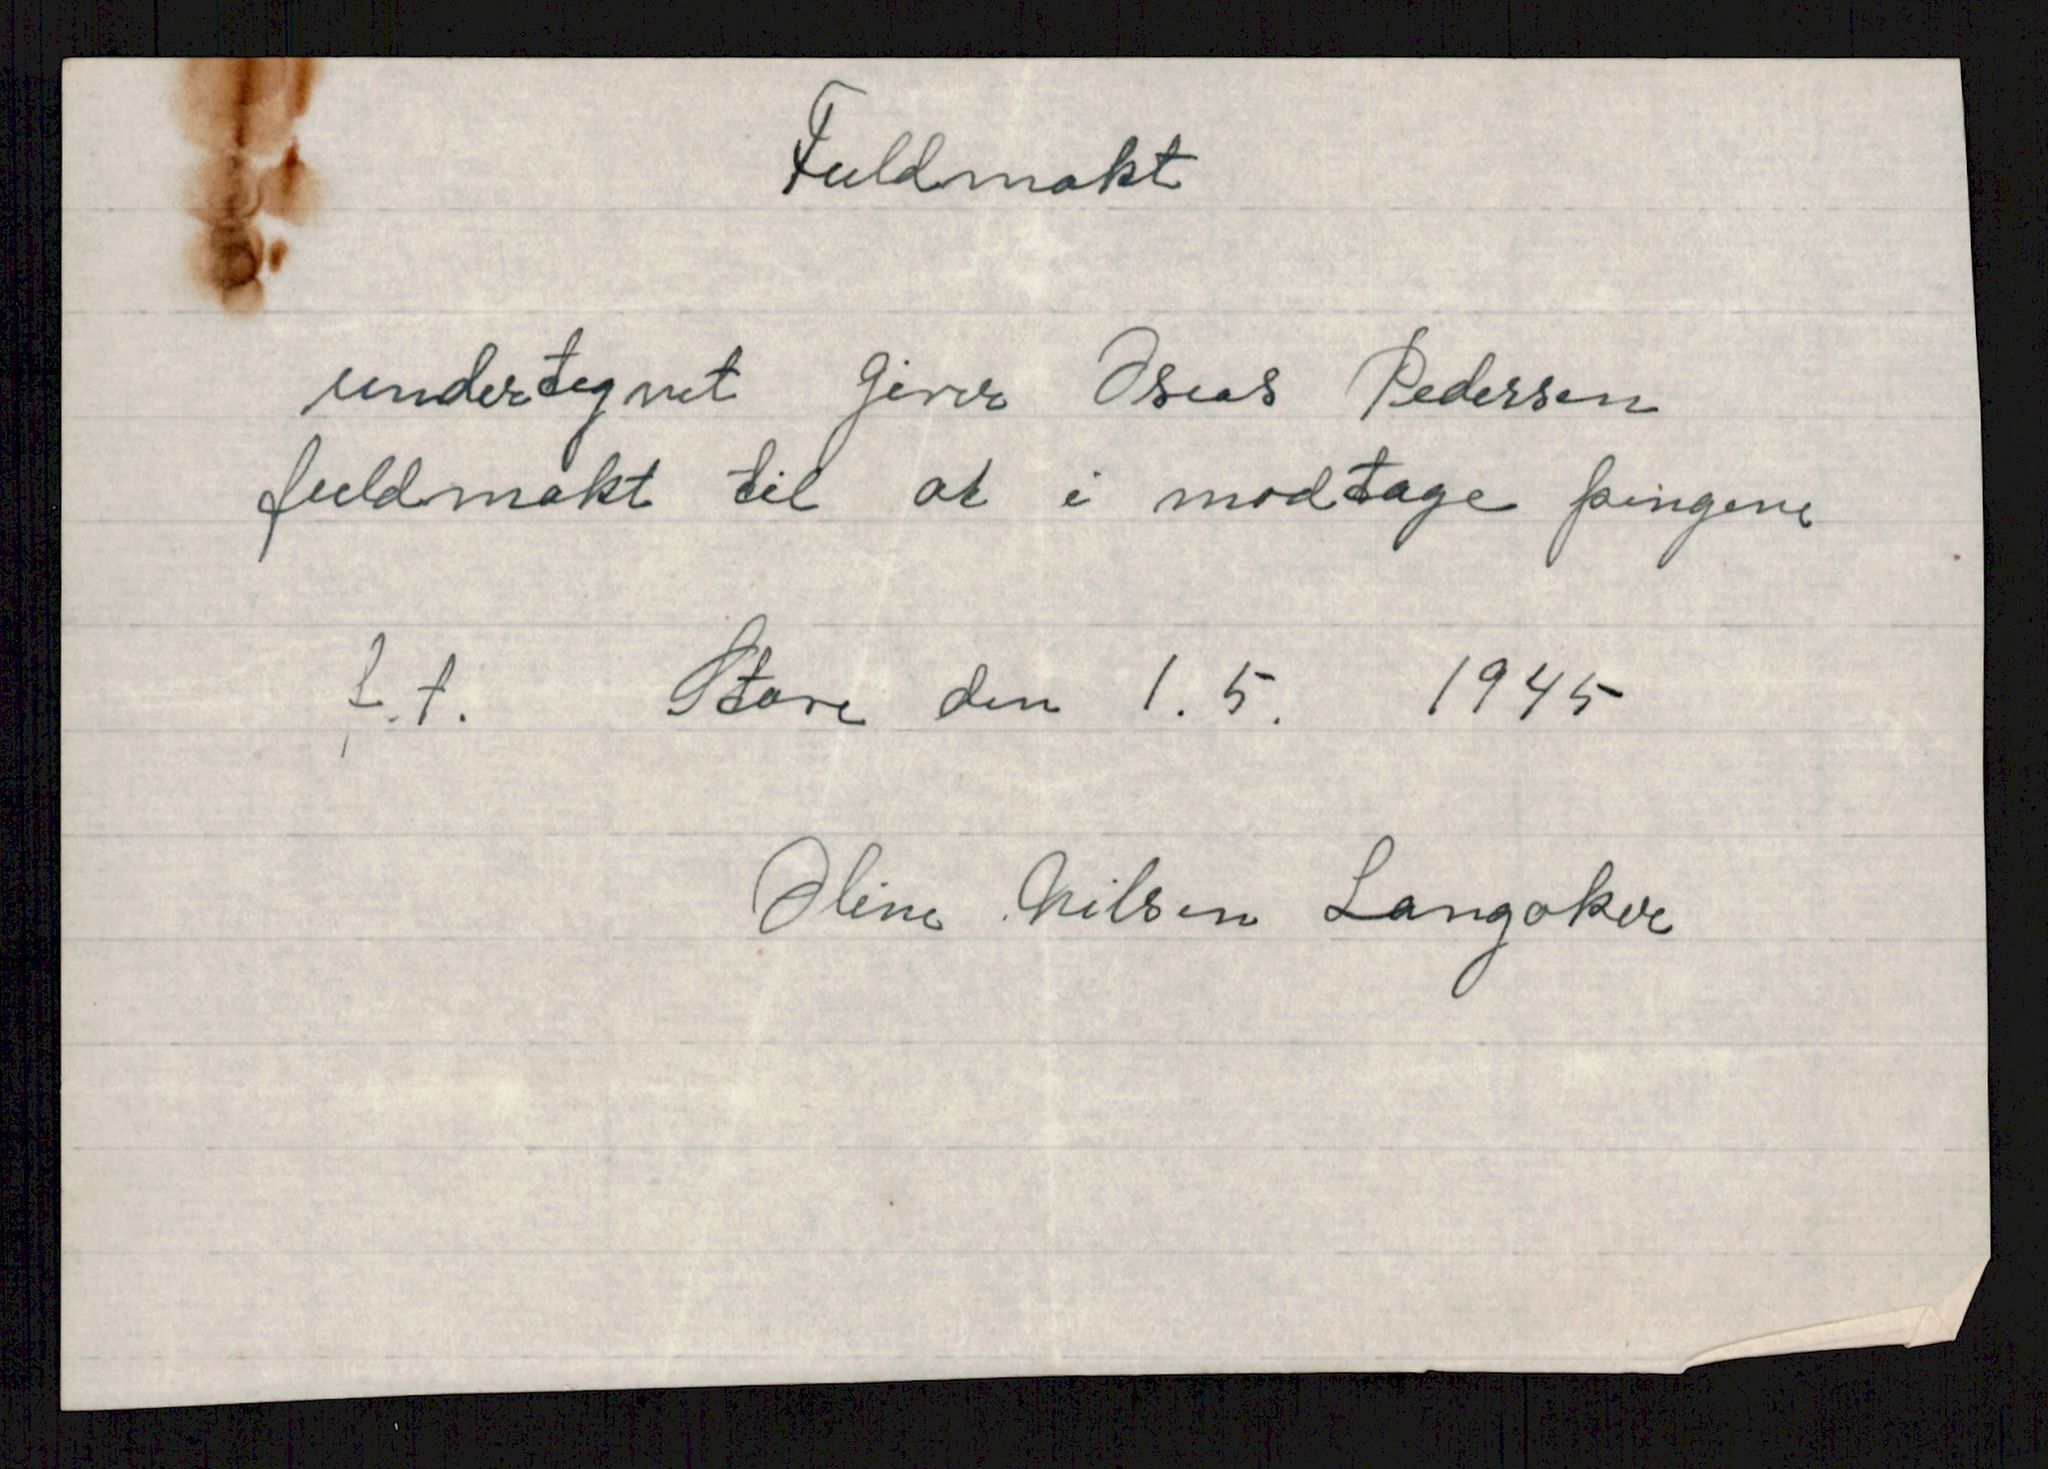 Fuldmakt
undertegnet giver Oseas Pedersen
fuldmakt til at i modtage pengene
Z.t. Stave den 1.5. 1945
Oline Nilsen Langaker